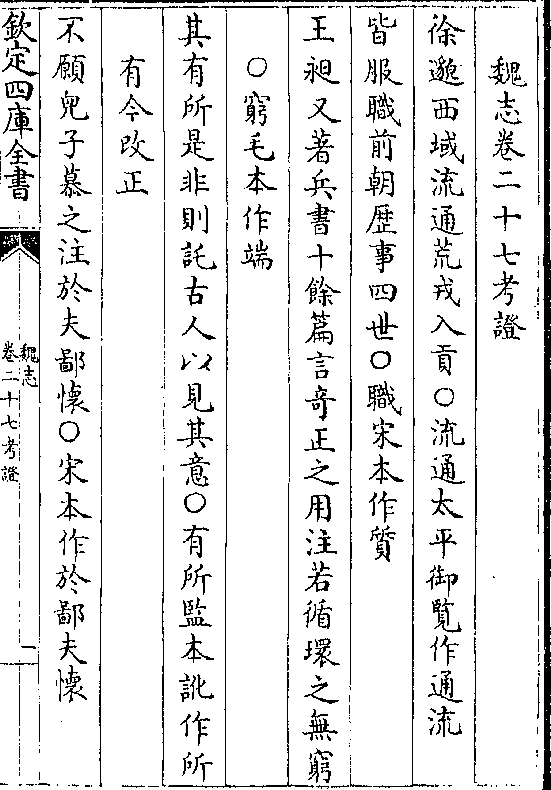 魏志卷二十七考證
徐邈西域流通荒戎入貢○流通太平御覽作通流
皆服職前朝歷事四世○職宋本作質
王昶又著兵書十餘篇言奇正之用注若循環之無窮
○窮毛本作端
其有所是非則託古人以見其意○有所監本訛作所
有今改正
不願兒子慕之注於夫鄙懷○宋本作於鄙夫懷
欽定四庫全書
魏志
卷二十七考證
一